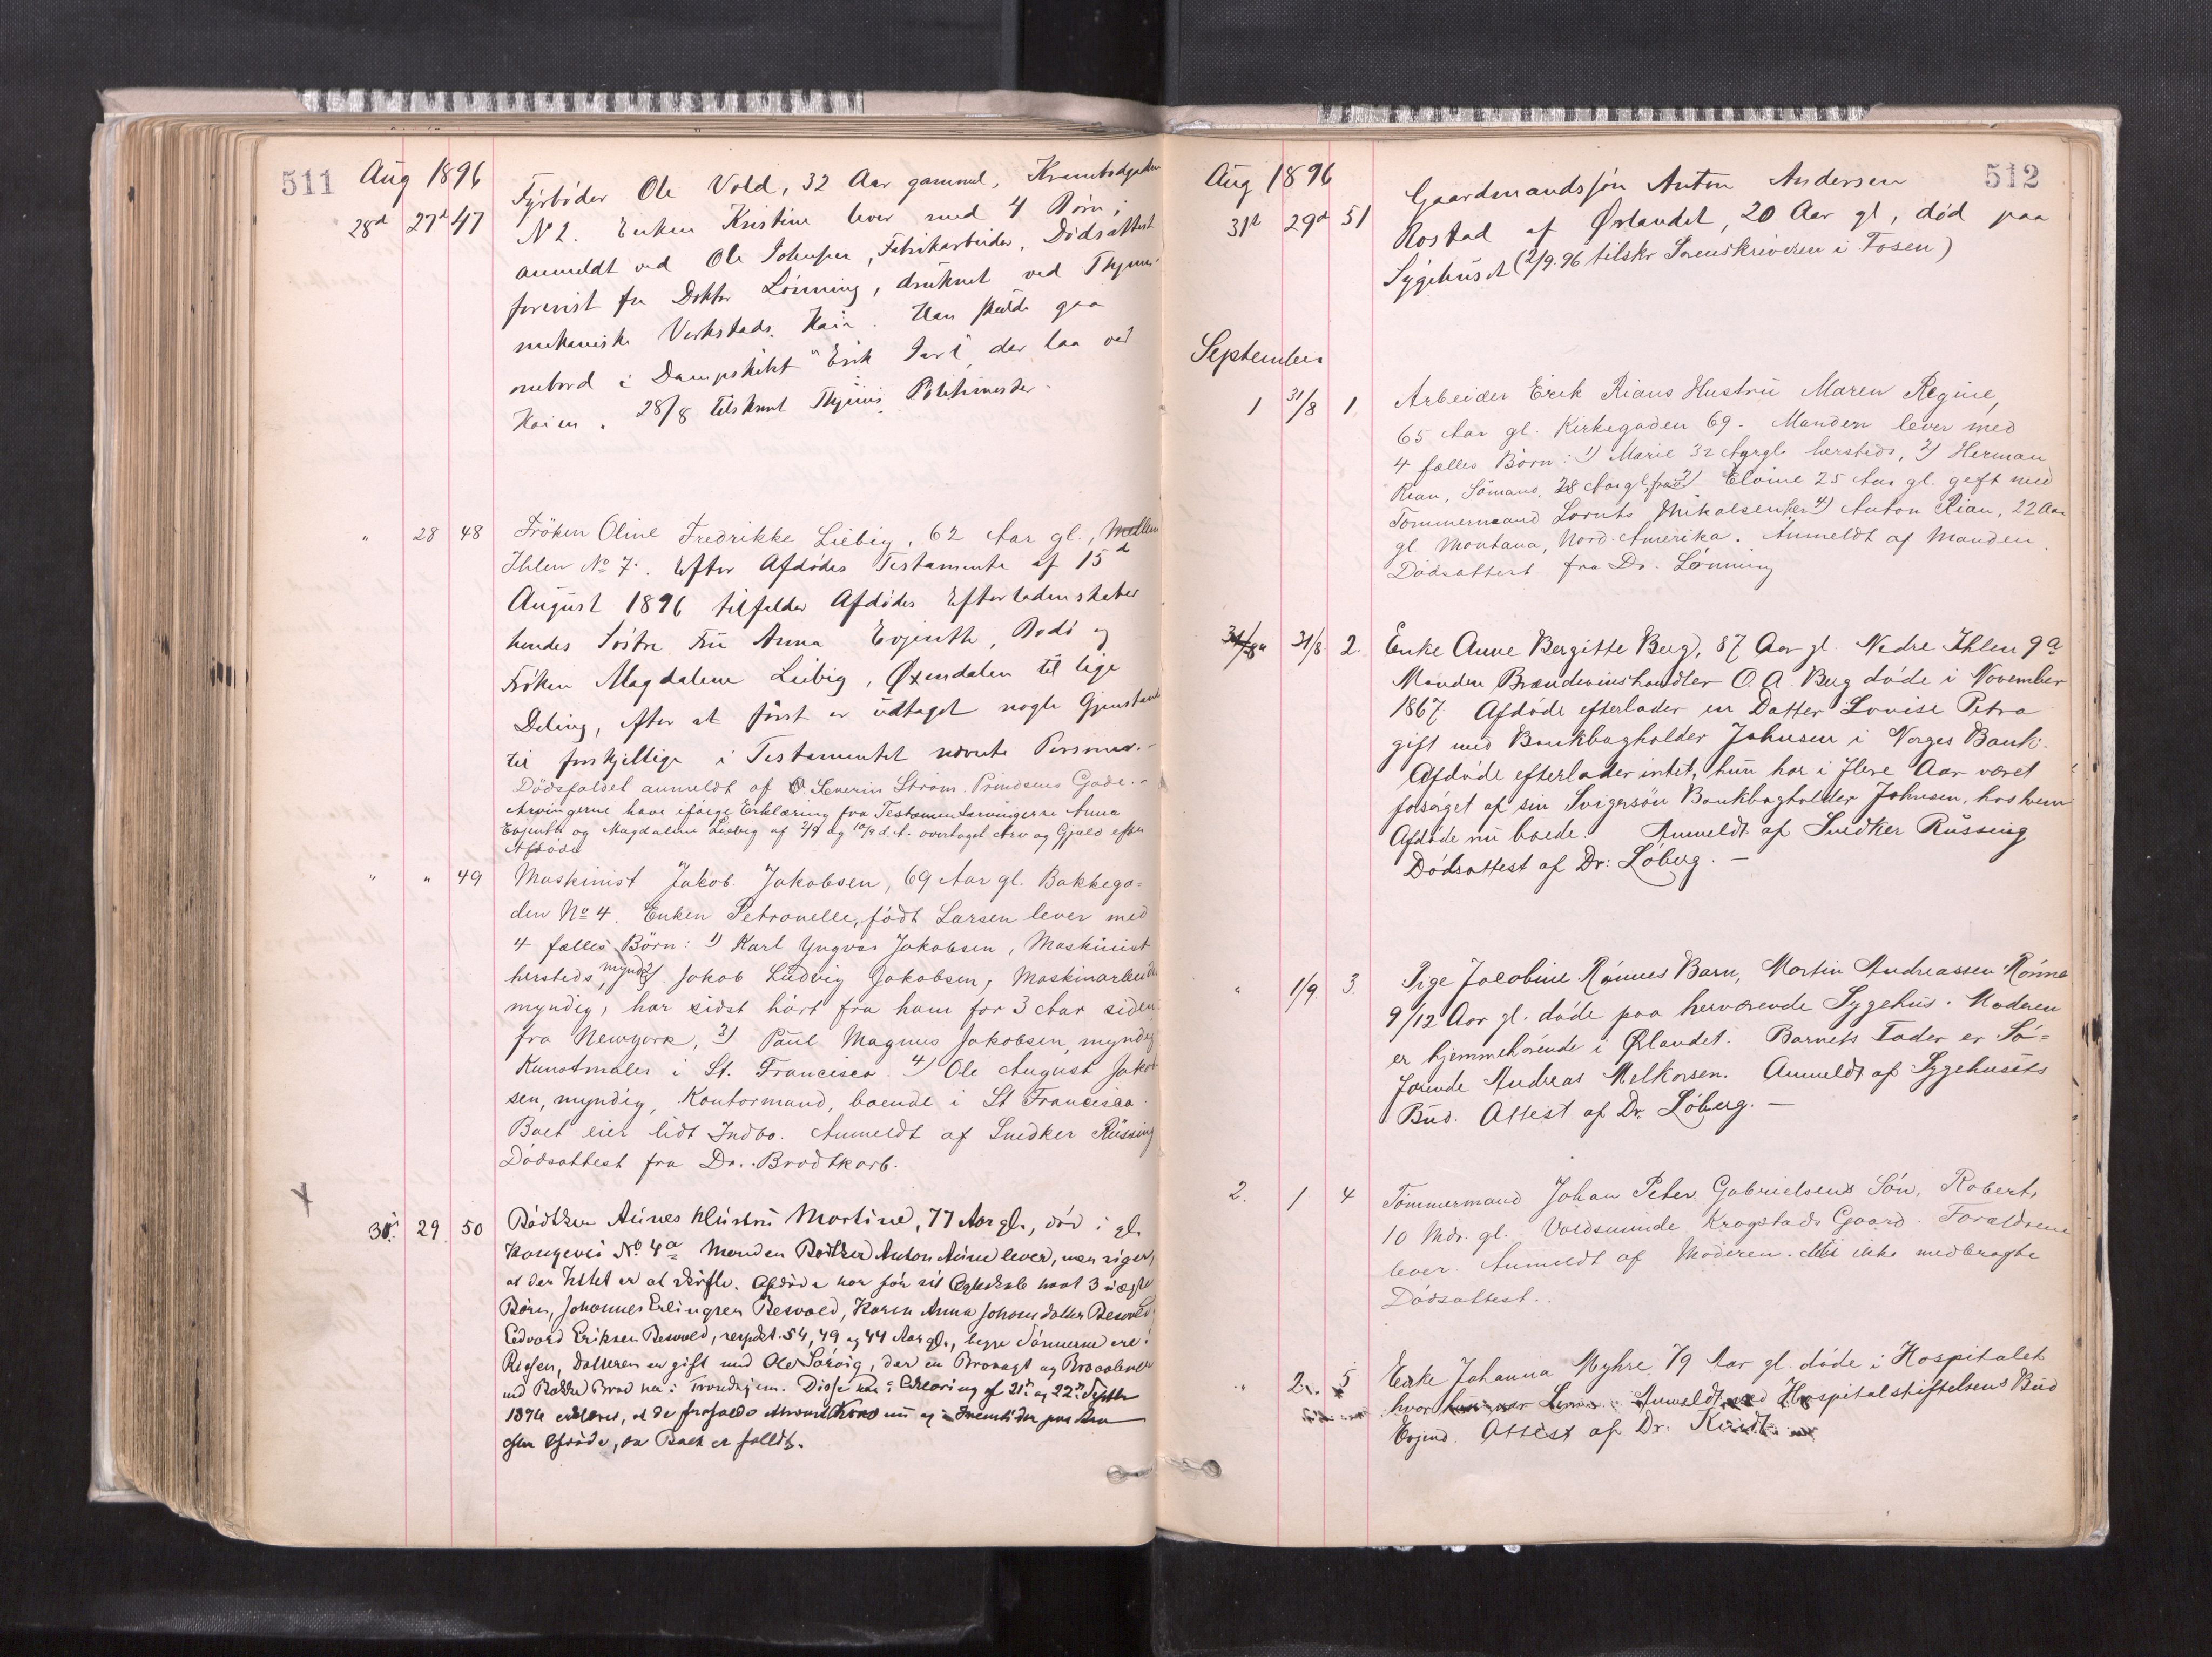 511
Aug 1896
28d 27d 47
Fyrböder Ole Vold, 32 Aar gammel, Krambodgaden
No 2. Enken Kristine lever med 4 Börn;
anmeldt ved Ole Johnsen, Fabrikarbeider, Dödsattest
forevist fra Doktor Lönning, druknet ved Thjems
mekaniske Verkstads Kai. Han skulde gaa
ombord i Dampskibet "Erik Jarl", der laa ved
Kaien. 28/8 tilskrevet Thjems Politimester
" 28 48
Fröken Oline Fredrikke Liebig, 62 Aar gl., Mellem
Ihlen No 7. Efter Afdödes Testamente af 15d
August 1896 tilfalder Afdödes Efterladenskaber
hendes Söstre Fru Anna Evjenth, Bodö og
Fröken Magdalene Liebig, Øxendalen til lige
Deling, efter at först er udtaget nogle Gjenstande
til forskjellige i Testamentet nævnte Personer.-
Dödsfaldet anmeldt af O. Severin Ström. Prindsens Gade.-
Arvingerne have ifölge Erklæring fra Testamentarvingerne Anna
Evjenth og Magdalene Liebig af 2/9 og 10/9 d. A. overtaget Arv og Gjæld efter
Afdöde
" " 49
Maskinist Jakob Jakobsen, 69 Aar gl. Bakkega=
den No 4. Enken Petronelle, född Larsen lever med
4 fælles Börn: 1) Karl Yngvar Jakobsen, Maskinist
hersteds, mynd. 2) Jakob Ludvig Jakobsen, Maskinarbeider
myndig, har sidst hört fra ham for 3 Aar siden
fra Newyork, 3) Paul Magnus Jakobsen, myndig
Kunstmaler i St. Francisco. 4) Ole August Jakob
sen, myndig, Kontormand, boende i St Francisco.
Boet eier lidt Indbo. Anmeldt af Snedker Rüssing
Dödsattest fra Dr. Brodtkorb.
31. 29 50
Bödker Aunes Hustru Martine, 77 Aar gl., död i gl.
Kongevei No. 4a Manden Bödker Anton Aune lever, men siger,
at der Intet er at skifte. Afdöde har för sit Ægteskab havt 3 uægte
Börn, Johannes Erlingsen Resvold, Karen Anna Johansdatter Resvold
Edvard Eriksen Resvold, respekt. 54, 49 og 44 Aar gl., begge Sönnerne ere i
Datteren er gift med Ole Sörvig, der er Brovagt og
ved Bakke Bro her i Trondhjem. Disse har i Erklæring af 21de og 22de Septbr
1896 erklæret, at de frafalde Arvekrav nu og i Fremtiden paa Arv
efter Afdöde, da Boet er fallit.
512
Aug 1896
31te 29d 51
Gaardmandssön Anton Andersen
Rostad af Ørlandet, 20 Aar gl, död paa
Sygehuset (2/9.96 tilskr Sorenskriveren i Fosen)
September
1 31/8 1
Arbeider Erik Rians Hustru Maren Regine,
65 Aar gl. Kirkegaden 69. Manden lever med
4 fælles Börn: 1) Marie 32 Aar gl. hersteds, 2) Herman
Rian, Sömand, 28 Aar gl. 3) Eloine 25 Aar gl. gift med
Tömmermand Lornts Mikalsen her 4) Anton Rian, 22 Aar
gl. Montana, Nord-Amerika. Anmeldt af Manden.
Dödsattest fra Dr. Lönning
31/8 31/8 2.
Enke Anne Bergitte Berg, 87 Aar gl. Nedre Ihlen 9a
Manden Brændevinshandler O. A. Berg döde i November
1867. Afdöde efterlader en Datter Lovise Petra
gift med Bankbogholder Johnsen i Norges Bank.
Afdöde efterlader intet, hun har i flere Aar været
forsörget af sin Svigersön Bankbogholder Johnsen, hos hvem
Afdöde nu boede. Anmeldt af Snedker Rüssing
Dödsattest af Dr: Löberg. -
" 1/9. 3.
Pige Jacobine Rönnes Barn, Martin Andreassen Rönne
9/12 Aar gl. döde paa herværende Sygehus. Moderen
er hjemmehörende i Ørlandet. Barnets Fader er Sö=
farende Andreas Melkorsen. Anmeldt af Sygehusets
Bud. Attest af Dr. Löberg. -
2. 1 4
Tömmermand Johan Peter Gabrielsens Sön, Robert,
10 Mdr. gl. Voldsminde Krogstads Gaard. Forældrene
lever. Anmeldt af Moderen. ikke medbragte
Dödsattest.
" 2. 5
Enke Johanna Myhre 79 Aar gl. döde i Hospitalet
hvor hun var Lem. Anmeldt ved Hospitalstiftelsens Bud
Evjend. Attest af Dr.